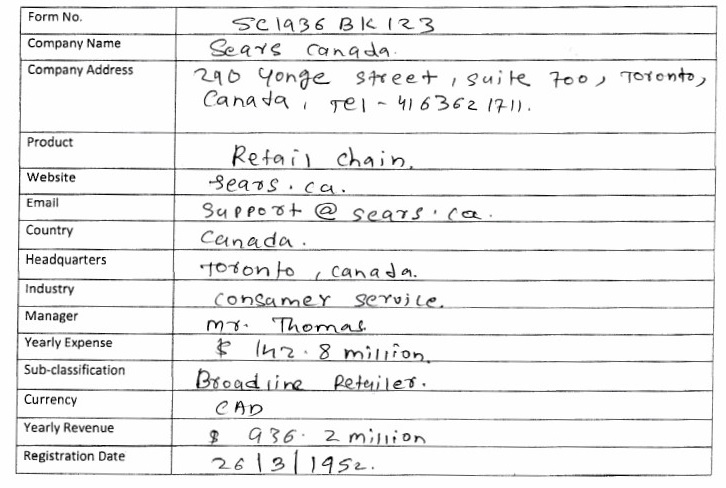 Form No. SC1936 BK123
Company Name Sears Canada.
Company Address 290 Yonge Street, Suite 700, Toronto,
Canada, Tel - 4163621711.
Product Retail chain.
Website Sears.ca.
Email Support@sears.ca.
Country Canada.
Headquarters Toronto, Canada.
Industry Consumer service.
Manager Mr. Thomas.
Yearly Expense $ 142.8 million.
Sub-classification Broadline Retailer.
Currency CAD
Yearly Revenue $ 936.2 million
Registration Date 26/3/1952.